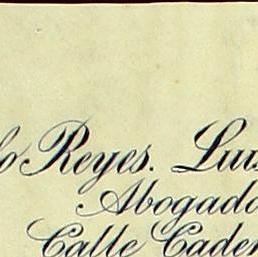 o Reyes. Luis
Abogado
Calle Caden